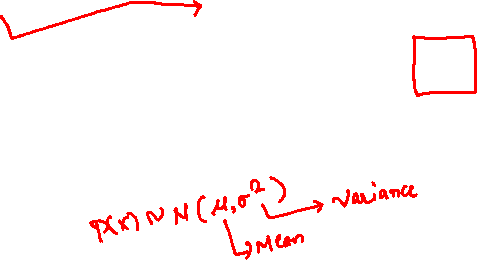 P(x) ~ N(μ,σ²) → Variance
→ Mean